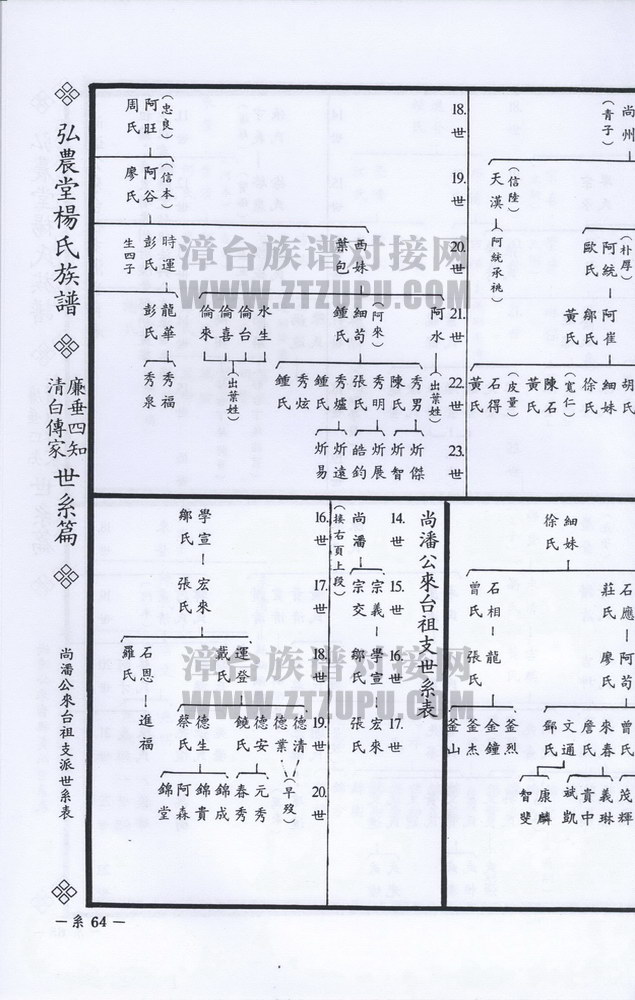 弘農堂楊氏族譜
廉垂四知
清白傳家
世系篇
尚潘公來台祖支派世系表
— 系 64 —
尚州
(青子)
天漢
(信陸)
(阿統承祧)
阿統
(朴厚)
歐氏
阿崔
鄒氏
黃氏
胡氏
細妹
徐氏
(寬仁)
陳石
黃氏
石得
(皮量)
黃氏
18.世
19.世
20.世
21.世
22.世
23.世
(忠良)
阿旺
周氏
(信本)
阿谷
廖氏
西妹
葉包
時運
彭氏
生四子
阿水
(出葉姓)
(阿來)
細苟
鍾氏
水生
倫台
倫喜
倫來
(出葉姓)
龍華
彭氏
秀男
陳氏
秀明
張氏
秀爐
鍾氏
秀炫
鍾氏
秀福
秀泉
炘傑
炘智
炘展
皓鈞
炘遠
炘易
細妹
徐氏
石應
莊氏
石相
曾氏
阿苟
廖氏
龍
張氏
曾氏
來春
詹氏
文通
鄧氏
釜烈
金鐘
釜杰
釜山
茂輝
義琳
貴中
斌凱
康麟
智斐
尚潘公來台祖支世系表
14.世
15.世
16.世
17.世
尚潘
(接右頁上段)
宗義
宗交
學宣
鄒氏
宏來
張氏
16.世
17.世
18.世
19.世
20.世
學宣
鄒氏
宏來
張氏
運登
戴氏
石恩
羅氏
德清
德業
(早歿)
德安
鐃氏
德生
蔡氏
進福
元秀
春秀
錦成
錦貴
阿森
錦堂
漳台族谱对接网
WWW.ZTZUPU.COM
漳台族谱对接网
WWW.ZTZUPU.COM